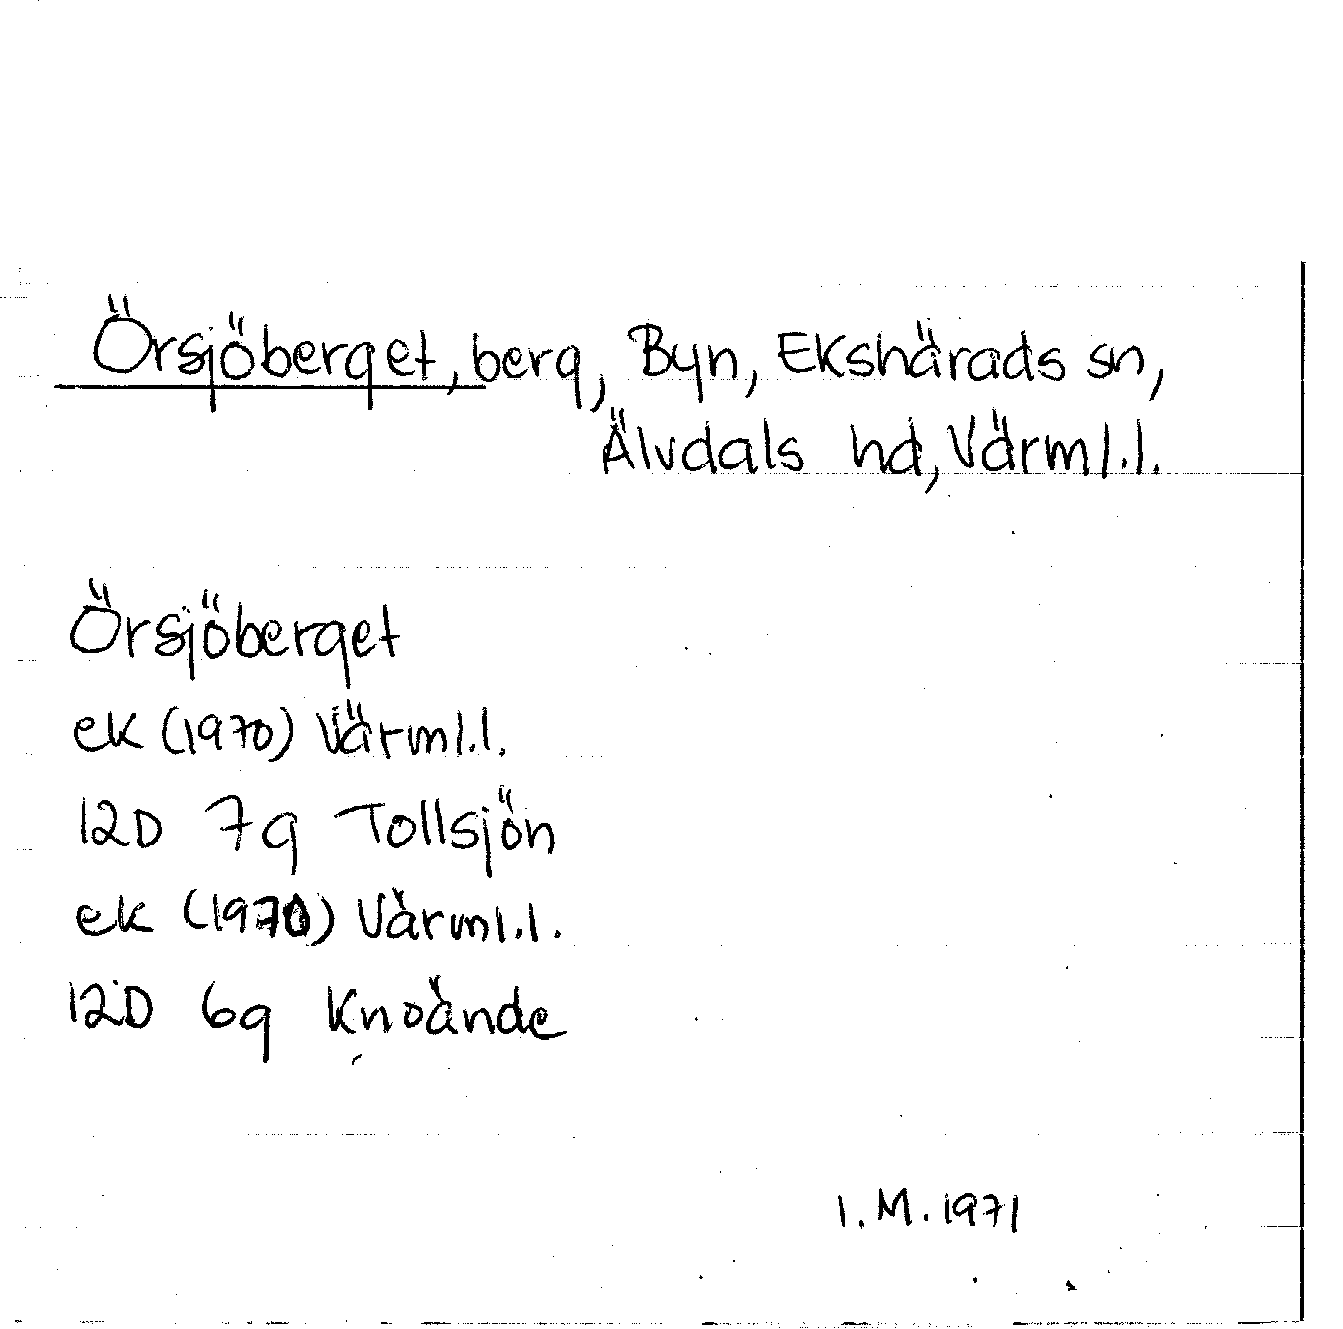 Örsjöberget, berg, Byn, Ekshärads sn,
Älvdals hd, Värml.l.
Örsjöberget
ek (1970) Värml.l.
12D 7g Tollsjön
ek (1970) Värml.l.
12D 6g Knoände
I.M. 1971